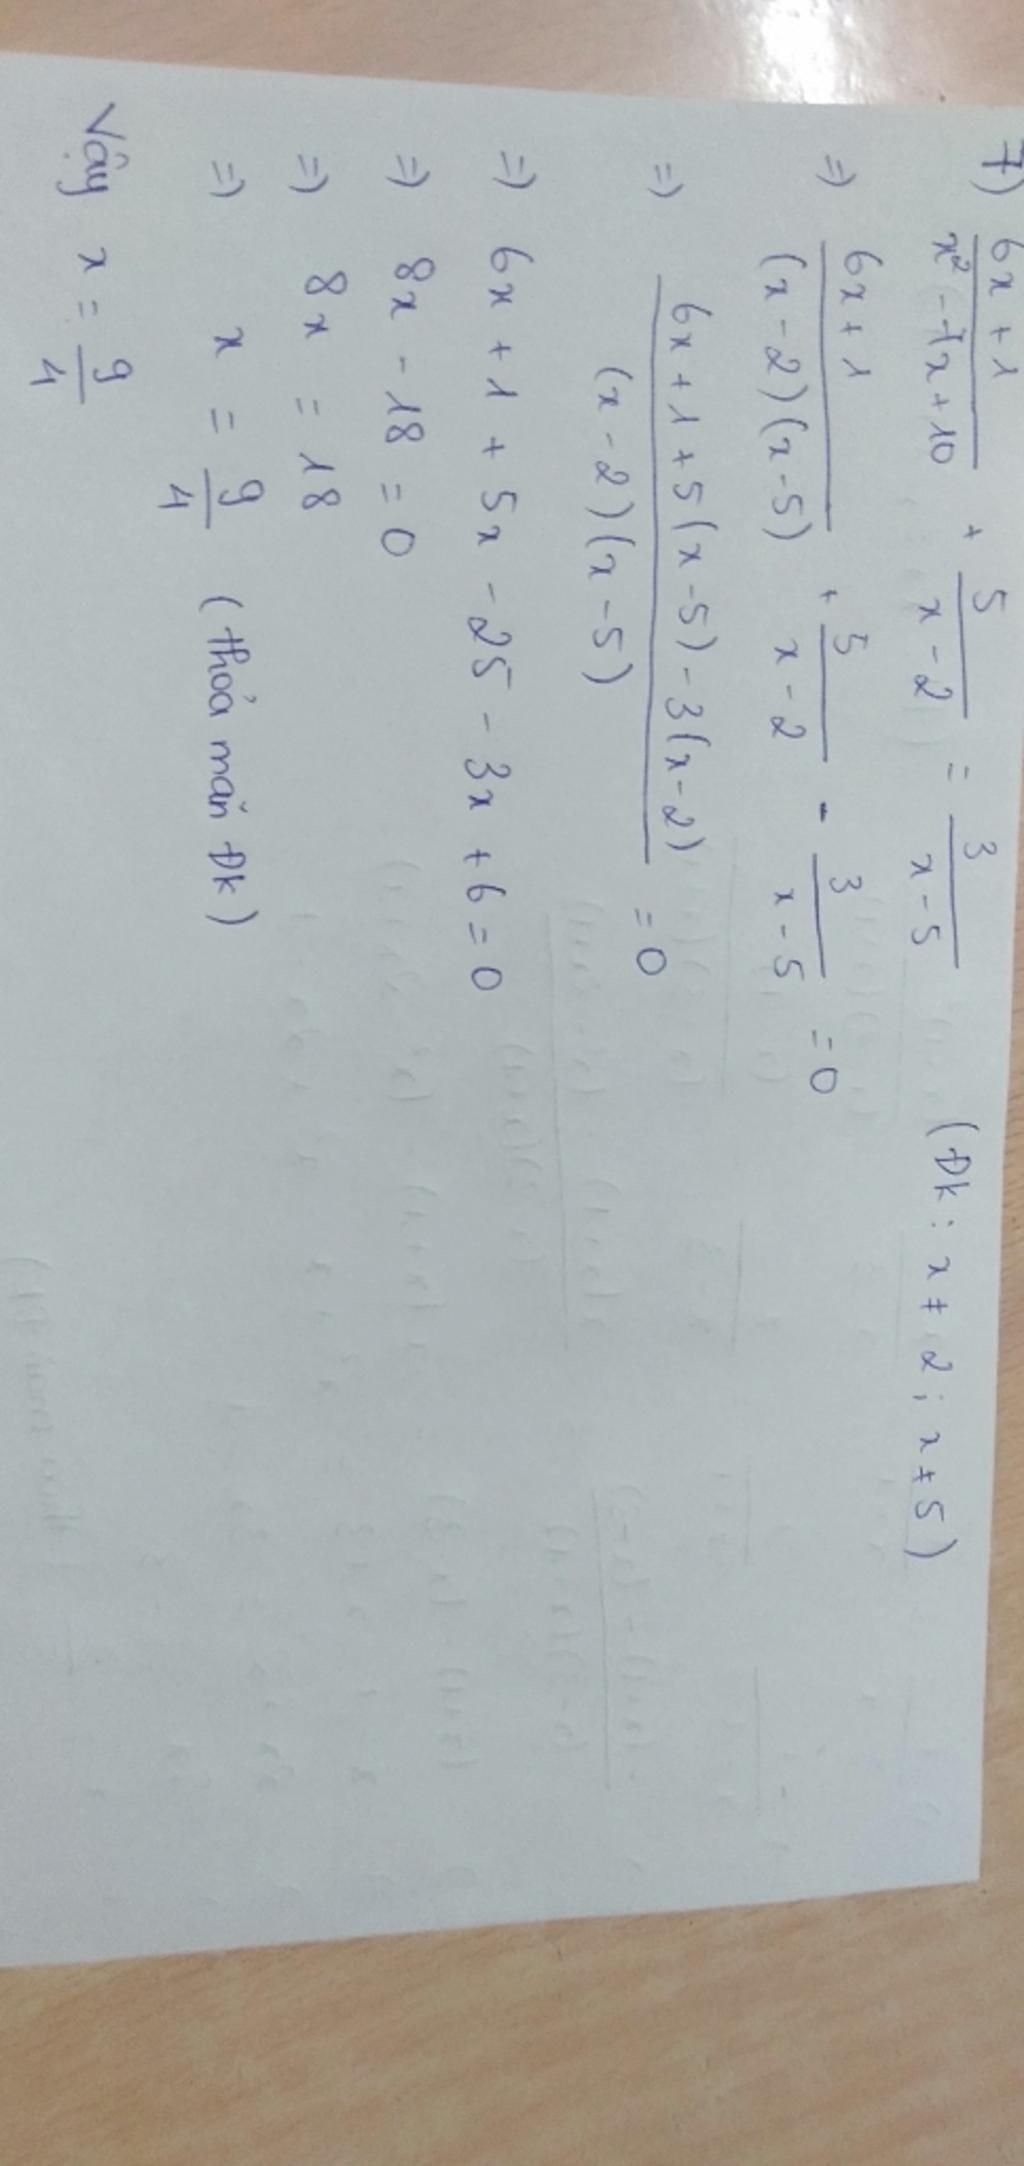 7) (6x + 1)/(x² - 7x + 10) + 5/(x - 2) = 3/(x - 5) (Đk: x ≠ 2; x ≠ 5)
=) (6x + 1)/((x - 2)(x - 5)) + 5/(x - 2) - 3/(x - 5) = 0
=) (6x + 1 + 5(x - 5) - 3(x - 2))/((x - 2)(x - 5)) = 0
=) 6x + 1 + 5x - 25 - 3x + 6 = 0
=) 8x - 18 = 0
=) 8x = 18
=) x = 9/4 (thoả mãn Đk)
Vậy x = 9/4